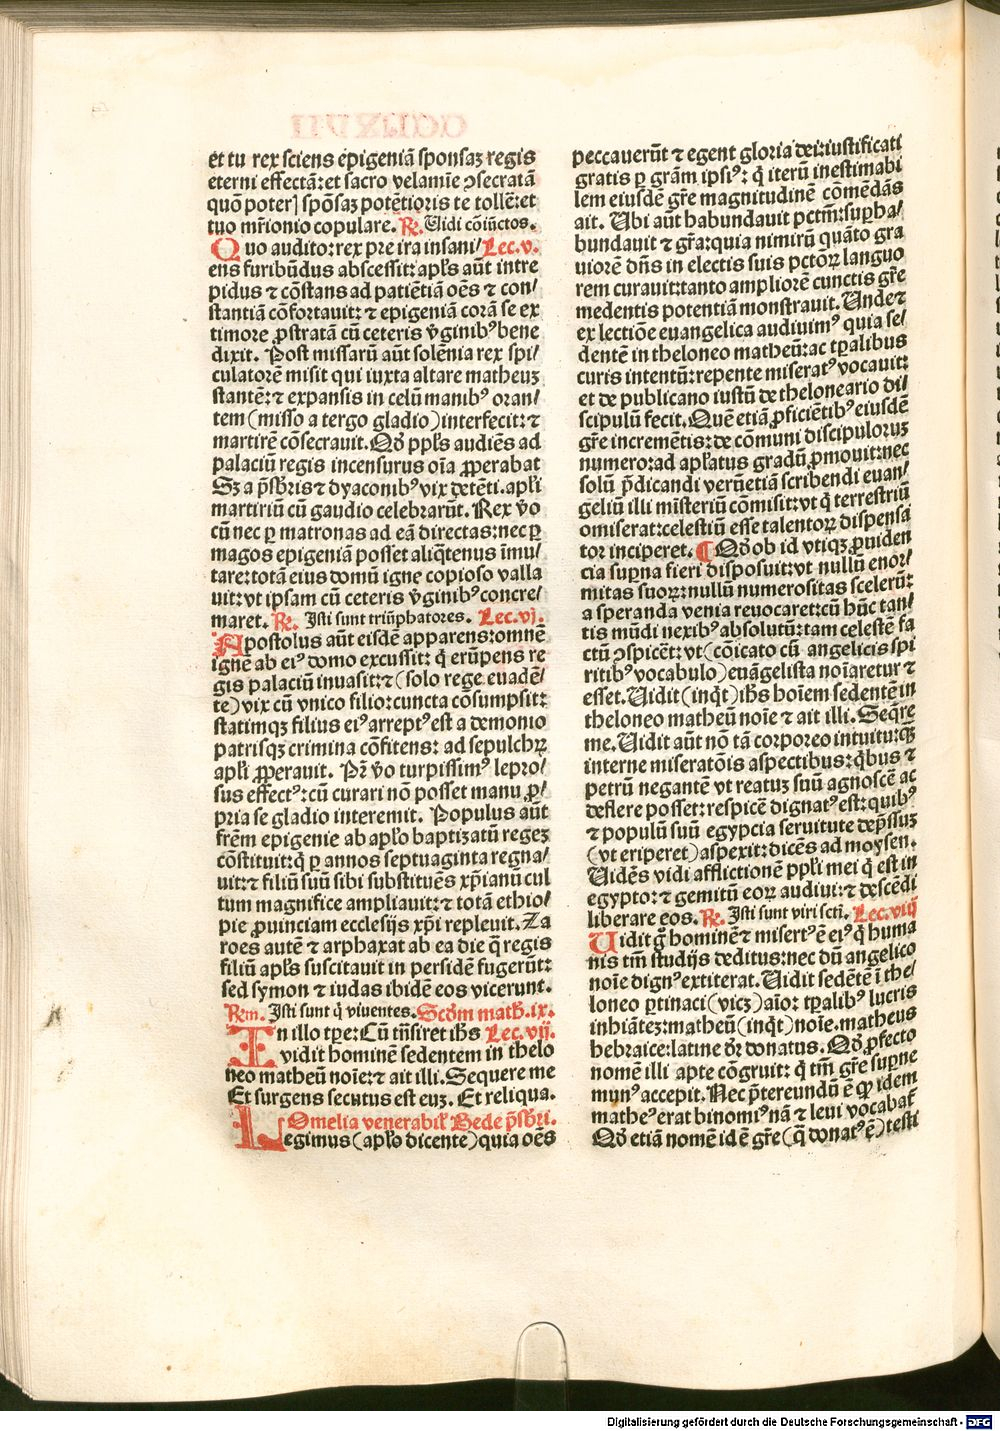 et tu rex sciens epigeniā sponsaꝫ regis
eterni effectā: et sacro velamīe ↄsecratā
quōn poterꝭ spōsaꝫ potētioris te tollē: et
tuo mr̄ionio copulare. ℟. Uidi cōiūctos.
Quo audito: rex pre ira insani/ Lec.v.
ens furibūdus abscessit: apl̄s aūt intre
pidus ⁊ cōstans ad patiētiā oēs ⁊ con/
stantiā cōfortauit: ⁊ epigeniā corā se ex
timore ꝓstratā cū ceteris v̄ginibꝰ bene
dixit. Post missarū aūt solēnia rex spi/
culatorē misit qui iuxta altare matheuꝫ
stantē: ⁊ expansis in celū manibꝰ oran/
tem (misso a tergo gladio) interfecit: ⁊
martirē cōsecrauit. Qd̄ ppl̄s audiēs ad
palaciū regis incensurus oīa ꝓperabat
Sꝫ a p̄sbr̄is ⁊ dyaconibꝰ vix detēti. apl̄i
martiriū cū gaudio celebrarūt. Rex v̄o
cū nec ꝑ matronas ad eā directas: nec ꝑ
magos epigeniā posset aliq̄tenus īmu/
tare: totā eius domū igne copioso valla
uit: vt ipsam cū ceteris v̄ginibꝰ concre/
maret. ℟. Isti sunt triūphatores. Lec.vj.
Apostolus aūt eisdē apparens: omnē
ignē ab eiꝰ domo excussit: q̄ erūpens re
gis palaciū inuasit: ⁊ (solo rege euadē/
te) vix cū vnico filio: cuncta cōsumpsit:
statimqꝫ filius eiꝰ arreptꝰ est a demonio
patrisqꝫ crimina cōfitens: ad sepulchꝝ
apl̄i ꝓperauit. Pr̄ v̄o turpissimꝰ lepro/
sus effectꝰ: cū curari nō posset manu ꝓ/
pria se gladio interemit. Populus aūt
frēm epigenie ab apl̄o baptizatū regeꝫ
cōstituit: q̄ ꝑ annos septuaginta regna/
uit: ⁊ filiū suū sibi substituēs xp̄ianū cul
tum magnifice ampliauit: ⁊ totā ethio/
pie ꝓuinciam ecclesijs xp̄i repleuit. Za
roes autē ⁊ arphaxat ab ea die q̄ regis
filiū apl̄s suscitauit in persidē fugerūt:
sed symon ⁊ iudas ibidē eos vicerunt.
℟m. Isti sunt q̄ viuentes. Scd̄m math̄.ix.
In illo tp̄e: Cū trn̄siret ih̄s Lec.vij.
vidit hominē sedentem in thelo
neo matheū noīe: ⁊ ait illi. Sequere me
Et surgens secutus est euꝫ. Et reliqua.
Omelia venerabil̄ Bede p̄sbr̄i.
Legimus (apl̄o dicente) quia oēs
peccauerūt ⁊ egent gloria dei: iustificati
gratis ꝑ grām ipsiꝰ: q̄ iterū inestimabi
lem eiusdē gr̄e magnitudinē cōmēdās
ait. Ubi aūt habundauit pctm̄: suꝑha/
bundauit ⁊ gr̄a: quia nimirū quāto gra
uiorē dn̄s in electis suis pctōꝝ languo
rem curauit: tanto ampliorē cunctis gr̄e
medentis potentiā monstrauit. Unde ⁊
ex lectiōe euangelica audiuimꝰ quia se/
dentē in theloneo matheū: ac tꝑalibus
curis intentū: repente miseratꝰ vocauit:
et de publicano iustū de theloneario di/
scipulū fecit. Quē etiā ꝓficiētibꝰ eiusdē
gr̄e incremētis: de cōmuni discipuloruꝫ
numero: ad apl̄atus gradū ꝓmouit: nec
solū p̄dicandi verūetiā scribendi euan/
geliū illi misteriū cōmisit: vt q̄ terrestriū
omiserat: celestiū esse talentoꝝ dispensa
tor inciperet. ¶ Qd̄ ob id vtiqꝫ ꝓuiden
cia suꝑna fieri disposuit: vt nullū enor/
mitas suoꝝ: nullū numerositas scelerū:
a speranda venia reuocaret: cū hūc tan/
tis mūdi nexibꝰ absolutū: tam celestē fa
ctū ↄspicēt: vt (cōicato cū angelicis spi
ritibꝰ vocabulo) euāgelista noīaretur ⁊
esset. Uidit (inq̄t) ih̄s hoīem sedentē in
theloneo matheū noīe ⁊ ait illi. Seq̄re
me. Uidit aūt nō tā corporeo intuitu: ꝗ̄ꝫ
interne miseratōis aspectibus: q̄bus ⁊
petrū negantē vt reatuꝫ suū agnoscē ac
deflere posset: respicē dignatꝰ est: quibꝰ
⁊ populū suū egypcia seruitute dep̄ssuꝫ
(vt eriperet) aspexit: dicēs ad moysen.
Uidēs vidi afflictionē ppl̄i mei q̄ est in
egypto: ⁊ gemitū eoꝝ audiui: ⁊ descēdi
liberare eos. ℟. Isti sunt viri sctī. Lec.viij
Uidit g̊ hominē ⁊ misertꝰ ē eiꝰ q̄ huma
nis tm̄ studijs deditus: nec dū angelico
noīe dignꝰ extiterat. Uidit sedētē ī the/
loneo ꝑtinaci (vicꝫ) aīo: tꝑalibꝰ lucris
inhiātēꝫ: matheū (inq̄t) noīe. matheus
hebraice: latine dr̄ donatus. Qd̄ ꝓfecto
nomē illi apte cōgruit: q̄ tm̄ gr̄e suꝑne
munꝰ accepit. Nec p̄tereundū ē ꝙ idem
matheꝰ erat binomiꝰ nā ⁊ leui vocabat̄
Qd̄ etiā nomē id ē gr̄e (q̄ donatꝰ ē) testi
Digitalisierung gefördert durch die Deutsche Forschungsgemeinschaft - DFG